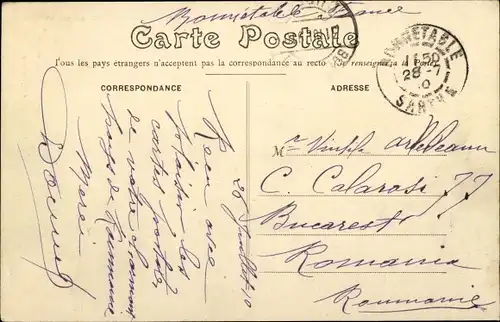 Bonnétable France
Carte Postale
Tous les pays étrangers n'acceptent pas la correspondance au recto (Se renseigner à la Poste).
CORRESPONDANCE
ADRESSE
BONNETABLE
28 -7
SARTHE
26 Juillet 10
Reçu avec
plaisir les
cartes postales
de votre charmant
pays de Roumanie
Merci
M
C. Calarasi 77
Bucarest
Romania
Roumanie